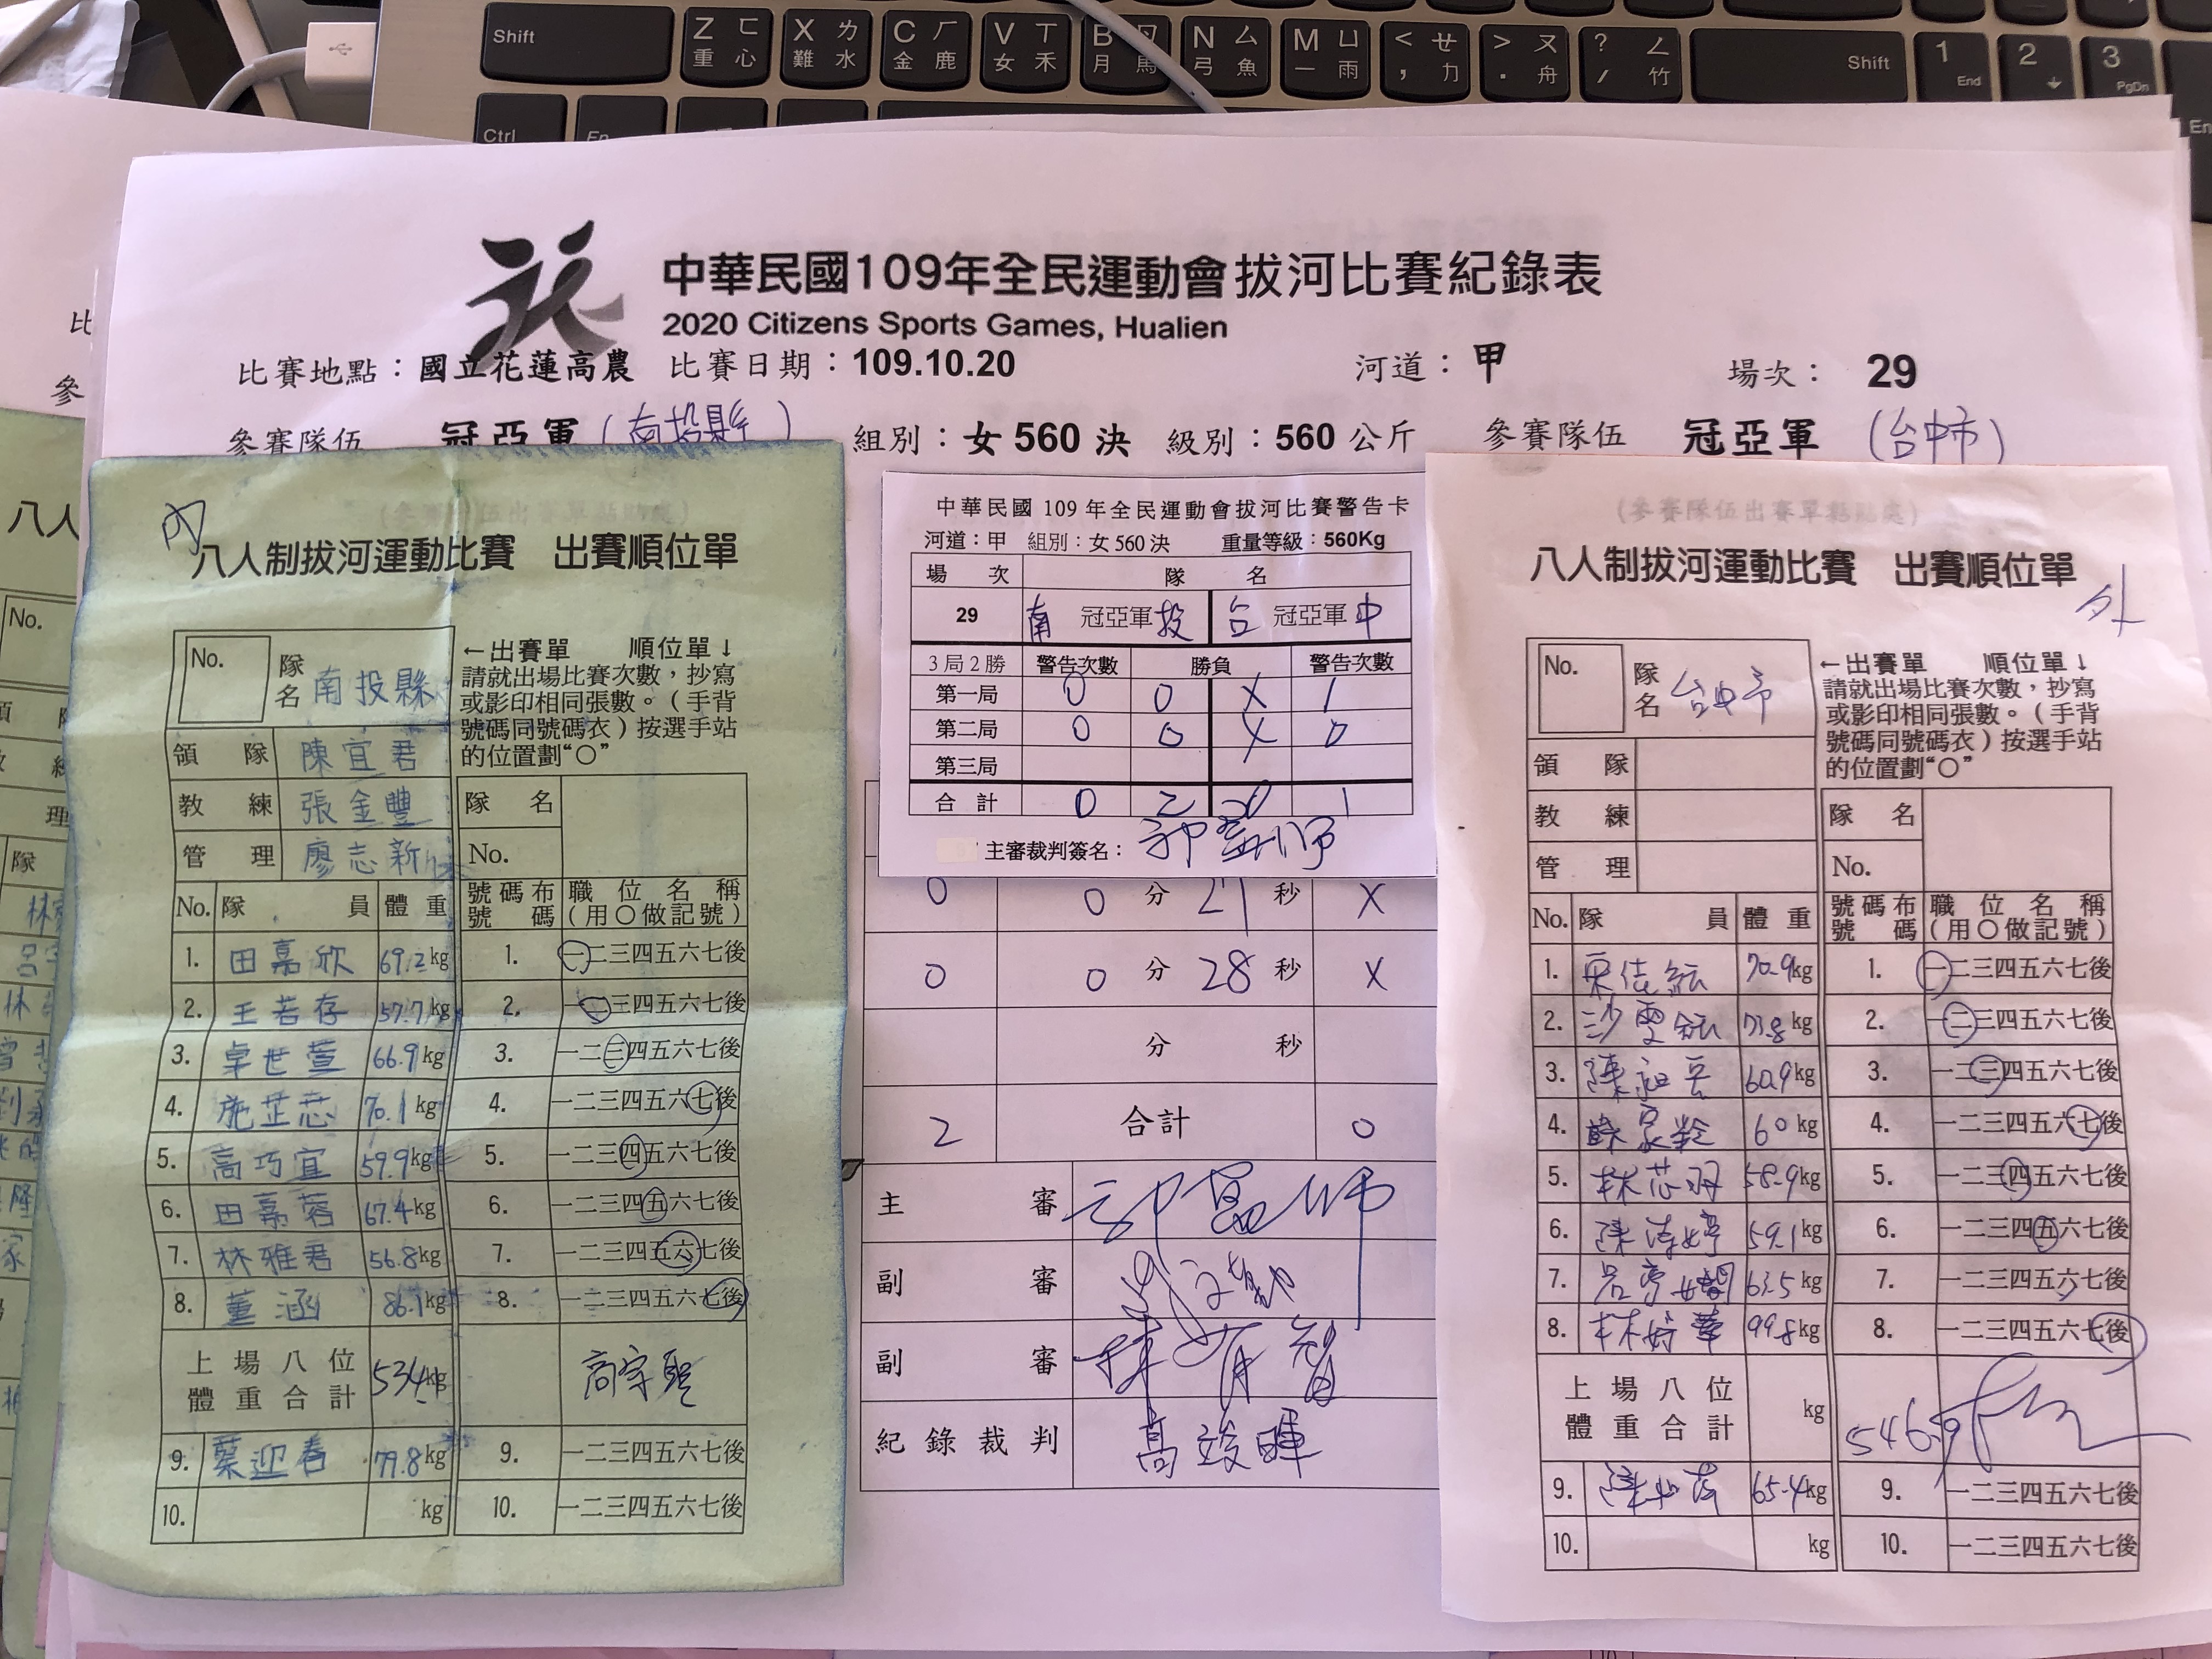 Shift Z ㄈ 重 心 X ㄌ 難 水 C ㄏ 金 鹿 V ㄒ 女 禾 B ㄖ 月 馬 N ㄙ 弓 魚 M ㄩ 一 雨 < ㄝ , 力 > ㄡ . 舟 ? ㄥ / 竹 Shift 1 End 2 3 PgDn
Ctrl Fn En
中華民國109年全民運動會拔河比賽紀錄表
2020 Citizens Sports Games, Hualien
比賽地點：國立花蓮高農 比賽日期：109.10.20 河道：甲 場次： 29
參賽隊伍 冠亞軍(南投縣) 組別：女 560 決 級別：560 公斤 參賽隊伍 冠亞軍 (台中市)
內
八人制拔河運動比賽 出賽順位單
No. 隊名 南投縣
←出賽單 順位單↓
請就出場比賽次數，抄寫
或影印相同張數。（手背
號碼同號碼衣）按選手站
的位置劃“○”
領隊 陳宜君
教練 張金豐 隊名
管理 廖志新 No.
No. 隊員 體重 號碼布號碼 職位名稱（用○做記號）
1. 田嘉欣 69.2kg 1. 一二三四五六七後
2. 王若存 57.7kg 2. 一二三四五六七後
3. 卓世萱 66.9kg 3. 一二三四五六七後
4. 施芷蕊 70.1kg 4. 一二三四五六七後
5. 高巧宜 59.9kg 5. 一二三四五六七後
6. 田嘉蓉 67.4kg 6. 一二三四五六七後
7. 林雅君 56.8kg 7. 一二三四五六七後
8. 董涵 86.1kg 8. 一二三四五六七後
上場八位體重合計 534kg 高宗聖
9. 蔡迎春 79.8kg 9. 一二三四五六七後
10. kg 10. 一二三四五六七後
中華民國 109 年全民運動會拔河比賽警告卡
河道：甲 組別：女 560 決 重量等級：560Kg
場次 隊名
29 南 冠亞軍 投 台 冠亞軍 中
3 局 2 勝 警告次數 勝負 警告次數
第一局 0 0 X 1
第二局 0 0 X 0
第三局
合計 0 2 0 1
主審裁判簽名：
0 0 分 21 秒 X
0 0 分 28 秒 X
分 秒
2 合計 0
主審
副審
副審
紀錄裁判 高竣暉
(參賽隊伍出賽單黏貼處)
八人制拔河運動比賽 出賽順位單
外
No. 隊名 台中市
←出賽單 順位單↓
請就出場比賽次數，抄寫
或影印相同張數。（手背
號碼同號碼衣）按選手站
的位置劃“○”
領隊
教練 隊名
管理 No.
No. 隊員 體重 號碼布號碼 職位名稱（用○做記號）
1. 70.9kg 1. 一二三四五六七後
2. 73.8kg 2. 一二三四五六七後
3. 60.9kg 3. 一二三四五六七後
4. 60kg 4. 一二三四五六七後
5. 林芯羽 58.9kg 5. 一二三四五六七後
6. 59.1kg 6. 一二三四五六七後
7. 63.5kg 7. 一二三四五六七後
8. 99.8kg 8. 一二三四五六七後
上場八位體重合計 kg 546.9
9. 65.4kg 9. 一二三四五六七後
10. kg 10. 一二三四五六七後